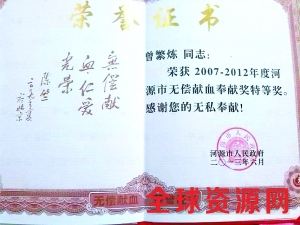 荣誉证书
无偿献
血仁爱
光荣
曾繁炼 同志：
荣获2007-2012年度河
源市无偿献血奉献奖特等奖。
感谢您的无私奉献！
河源市人民政府
二〇一三年六月
无偿献血
全球资源网